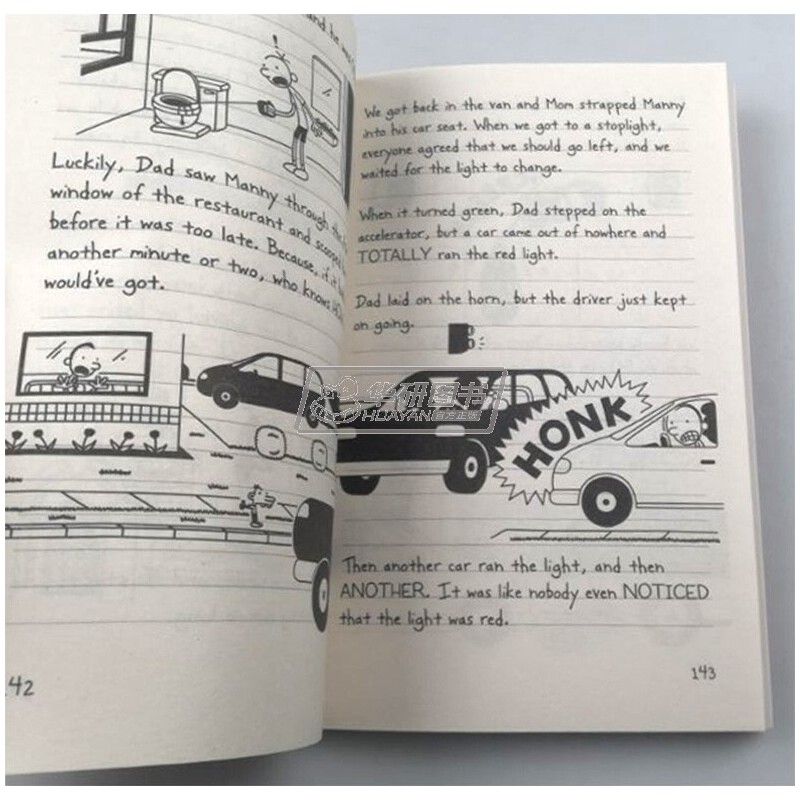 and he
Luckily, Dad saw Manny through the
window of the restaurant and
before it was too late. Because, if it
another minute or two, who knows
would've got.
142
We got back in the van and Mom strapped Manny
into his car seat. When we got to a stoplight,
everyone agreed that we should go left, and we
waited for the light to change.
When it turned green, Dad stepped on the
accelerator, but a car came out of nowhere and
TOTALLY ran the red light.
Dad laid on the horn, but the driver just kept
on going.
HONK
Then another car ran the light, and then
ANOTHER. It was like nobody even NOTICED
that the light was red.
143
华研图书
HUAYANG 官方正版